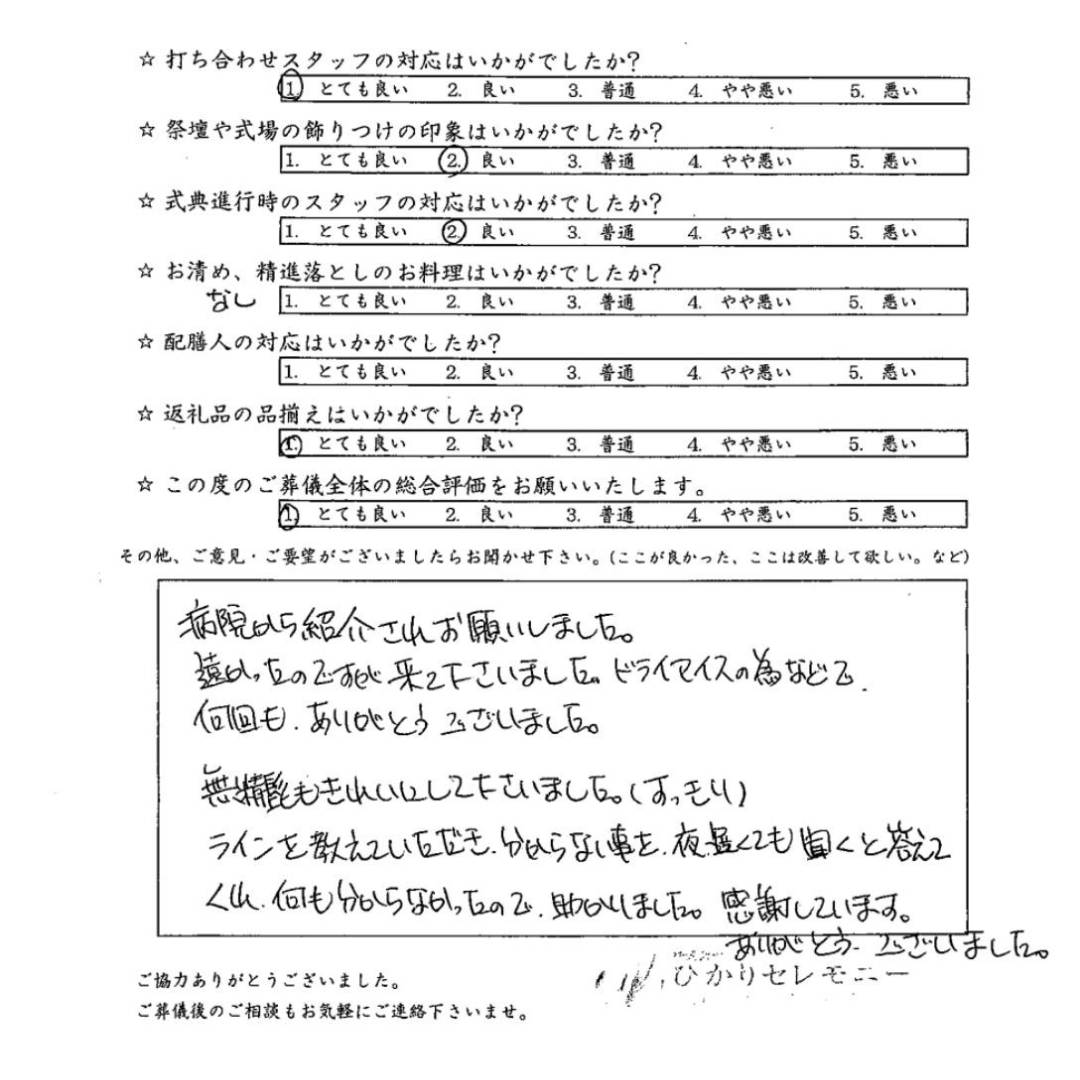 ☆ 打ち合わせスタッフの対応はいかがでしたか?
1. とても良い 2. 良い 3. 普通 4. やや悪い 5. 悪い
☆ 祭壇や式場の飾りつけの印象はいかがでしたか?
1. とても良い 2. 良い 3. 普通 4. やや悪い 5. 悪い
☆ 式典進行時のスタッフの対応はいかがでしたか?
1. とても良い 2. 良い 3. 普通 4. やや悪い 5. 悪い
☆ お清め、精進落としのお料理はいかがでしたか?
なし 1. とても良い 2. 良い 3. 普通 4. やや悪い 5. 悪い
☆ 配膳人の対応はいかがでしたか?
1. とても良い 2. 良い 3. 普通 4. やや悪い 5. 悪い
☆ 返礼品の品揃えはいかがでしたか?
1. とても良い 2. 良い 3. 普通 4. やや悪い 5. 悪い
☆ この度のご葬儀全体の総合評価をお願いいたします。
1. とても良い 2. 良い 3. 普通 4. やや悪い 5. 悪い
その他、ご意見・ご要望がございましたらお聞かせ下さい。(ここが良かった、ここは改善して欲しい。など)
病院から紹介されお願いしました。
遠かったのですが来て下さいました。ドライアイスの為などで、
何回も、ありがとうございました。
無精髭もきれいにして下さいました。(すっきり)
ラインを教えていただき、分からない事を、夜遅くても聞くと答えて
くれ、何も分からなかったので、助かりました。感謝しています。
ありがとうございました。
ひかりセレモニー
ご協力ありがとうございました。
ご葬儀後のご相談もお気軽にご連絡下さいませ。